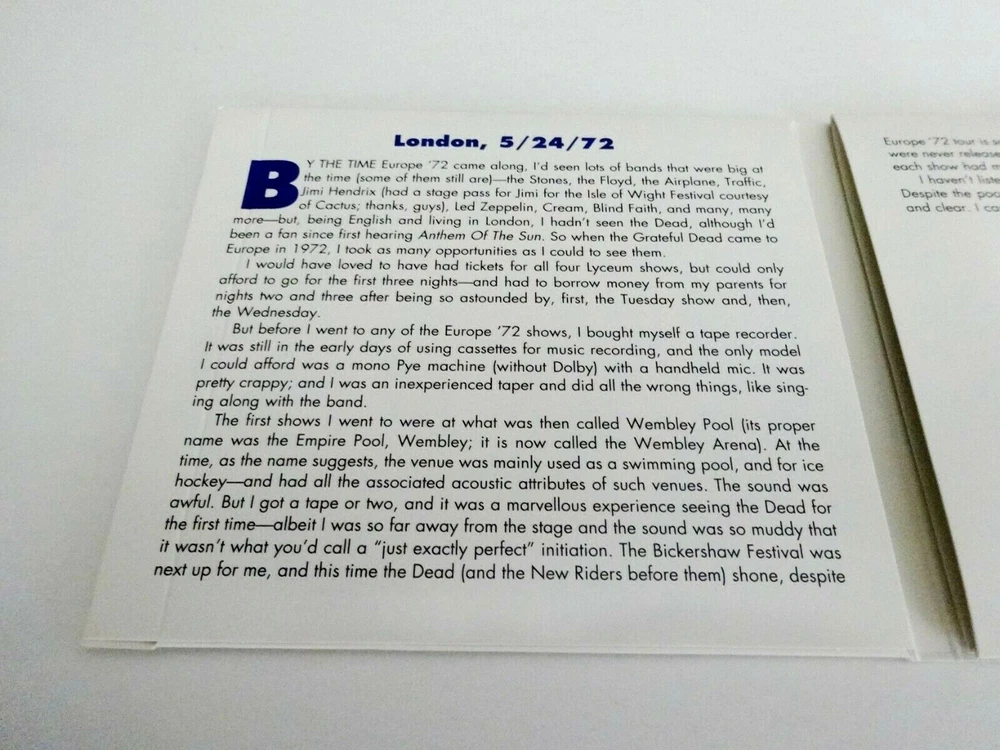 London, 5/24/72
BY THE TIME Europe '72 came along, I'd seen lots of bands that were big at
the time (some of them still are)—the Stones, the Floyd, the Airplane, Traffic,
Jimi Hendrix (had a stage pass for Jimi for the Isle of Wight Festival courtesy
of Cactus; thanks, guys), Led Zeppelin, Cream, Blind Faith, and many, many
more—but, being English and living in London, I hadn't seen the Dead, although I'd
been a fan since first hearing Anthem Of The Sun. So when the Grateful Dead came to
Europe in 1972, I took as many opportunities as I could to see them.
I would have loved to have had tickets for all four Lyceum shows, but could only
afford to go for the first three nights—and had to borrow money from my parents for
nights two and three after being so astounded by, first, the Tuesday show and, then,
the Wednesday.
But before I went to any of the Europe '72 shows, I bought myself a tape recorder.
It was still in the early days of using cassettes for music recording, and the only model
I could afford was a mono Pye machine (without Dolby) with a handheld mic. It was
pretty crappy; and I was an inexperienced taper and did all the wrong things, like sing-
ing along with the band.
The first shows I went to were at what was then called Wembley Pool (its proper
name was the Empire Pool, Wembley; it is now called the Wembley Arena). At the
time, as the name suggests, the venue was mainly used as a swimming pool, and for ice
hockey—and had all the associated acoustic attributes of such venues. The sound was
awful. But I got a tape or two, and it was a marvellous experience seeing the Dead for
the first time—albeit I was so far away from the stage and the sound was so muddy that
it wasn't what you'd call a "just exactly perfect" initiation. The Bickershaw Festival was
next up for me, and this time the Dead (and the New Riders before them) shone, despite
Europe '72 tour is
were never
each show had
I haven't
Despite the
and clear. I